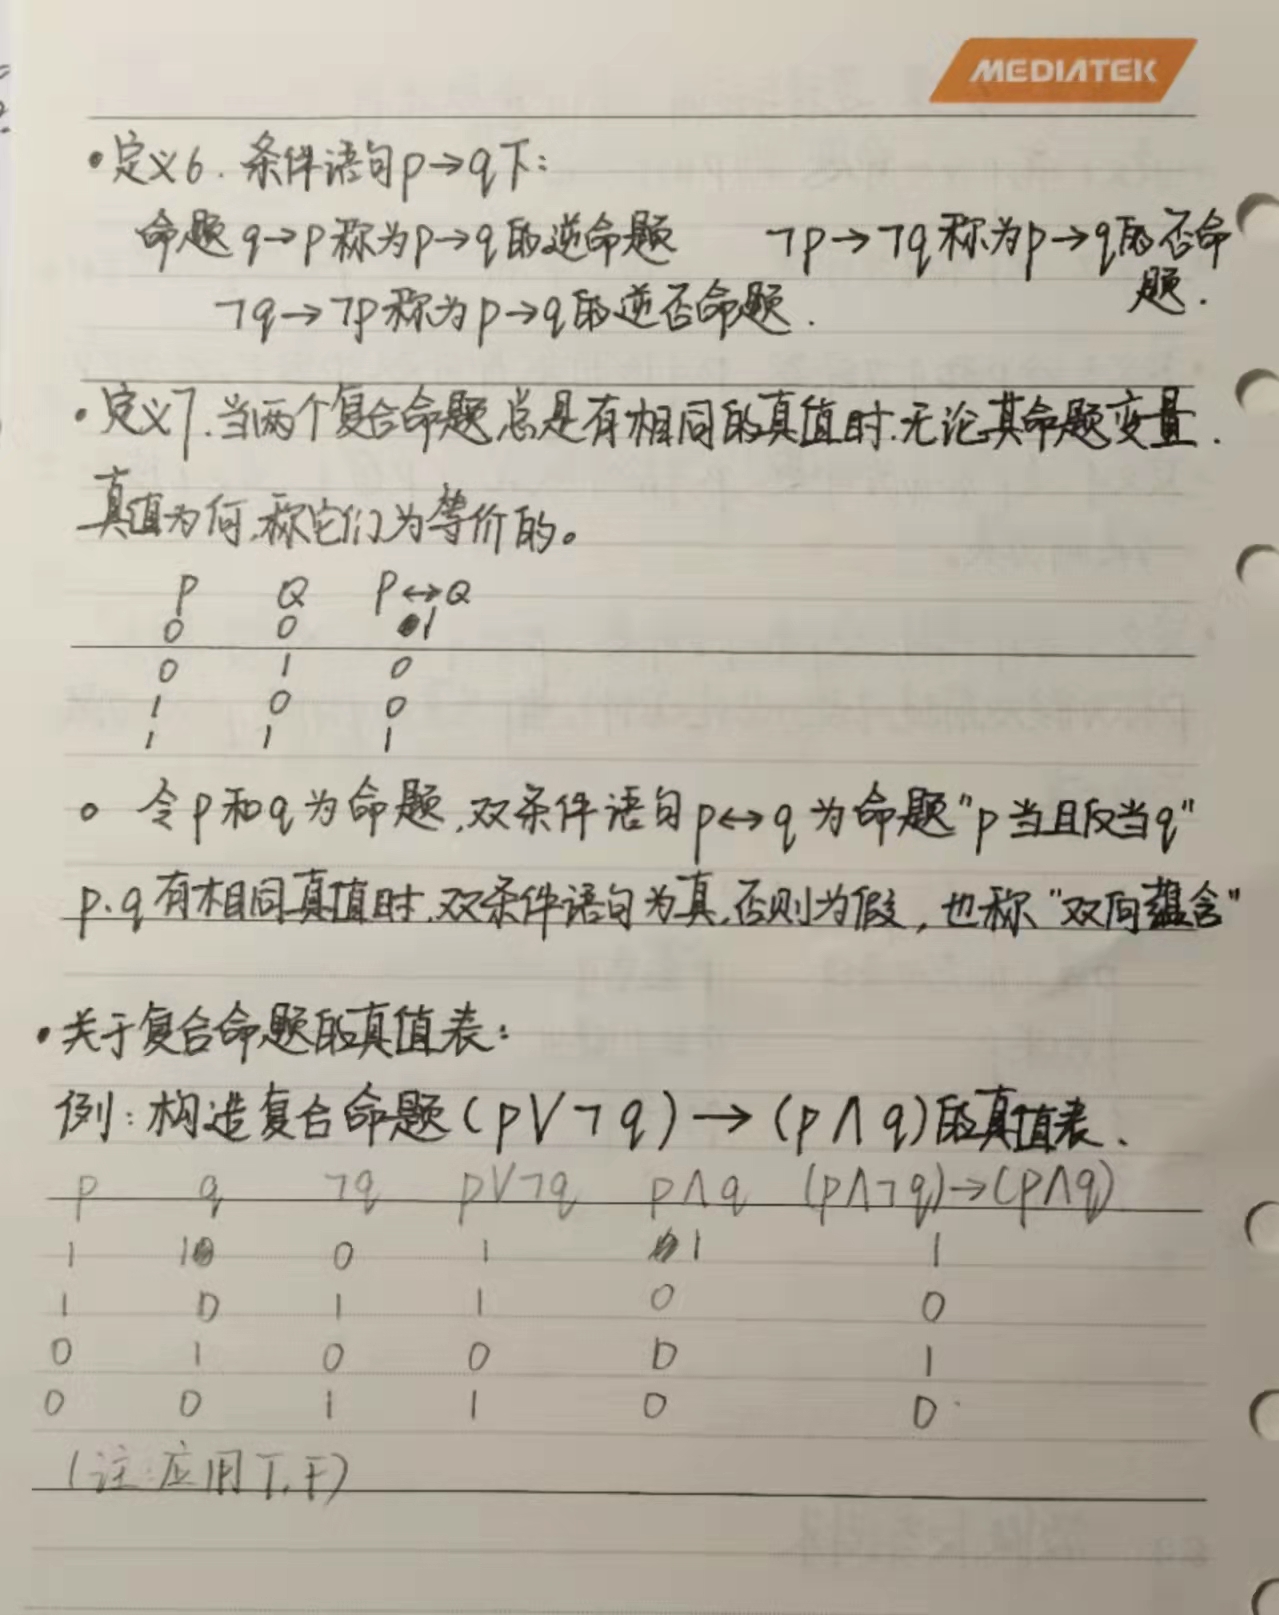 MEDIATEK
•定义6.条件语句p→q下:
命题q→p称为p→q的逆命题 ¬p→¬q称为p→q的否命
题.
¬q→¬p称为p→q的逆否命题.
•定义7.当两个复合命题总是有相同的真值时.无论其命题变量.
真值为何,称它们为等价的。
P Q P↔Q
0 0 1
0 1 0
1 0 0
1 1 1
○ 令p和q为命题,双条件语句p↔q为命题"p当且仅当q"
p.q有相同真值时,双条件语句为真,否则为假,也称"双向蕴含"
•关于复合命题的真值表:
例:构造复合命题(p∨¬q)→(p∧q)的真值表.
p q ¬q p∨¬q p∧q (p∧¬q)→(p∧q)
1 1 0 1 1 1
1 0 1 1 0 0
0 1 0 0 0 1
0 0 1 1 0 0
(注:应用T,F)